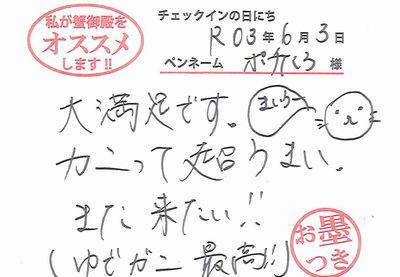 私が蟹御殿を
オススメ
します!!
チェックインの日にち
R 03年 6月 3日
ペンネーム ポカしろ 様
大満足です。
まいうー
カニって超うまい。
また来たい!!
(ゆでガニ 最高!!)
お墨
つき